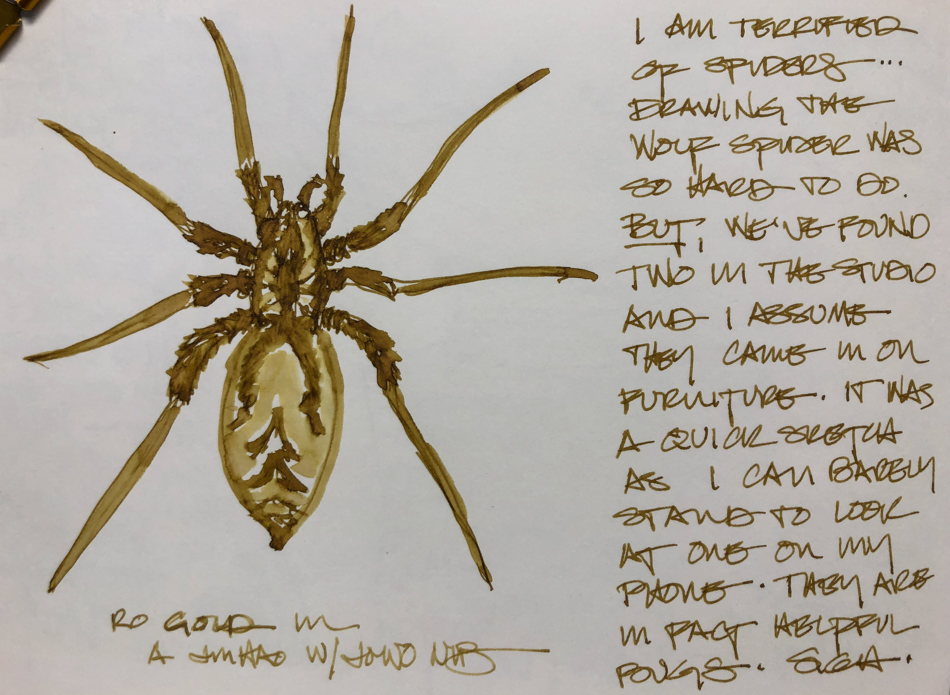 I AM TERRIFIED
OF SPIDERS...
DRAWING THE
WOLF SPIDER WAS
SO HARD TO DO.
BUT, WE'VE FOUND
TWO IN THE STUDIO
AND I ASSUME
THEY CAME IN ON
FURNITURE. IT WAS
A QUICK SKETCH
AS I CAN BARELY
STAND TO LOOK
AT ONE ON MY
PHONE. THEY ARE
IN FACT HELPFUL
RO GOLD IN
A W/ JOWO NIB